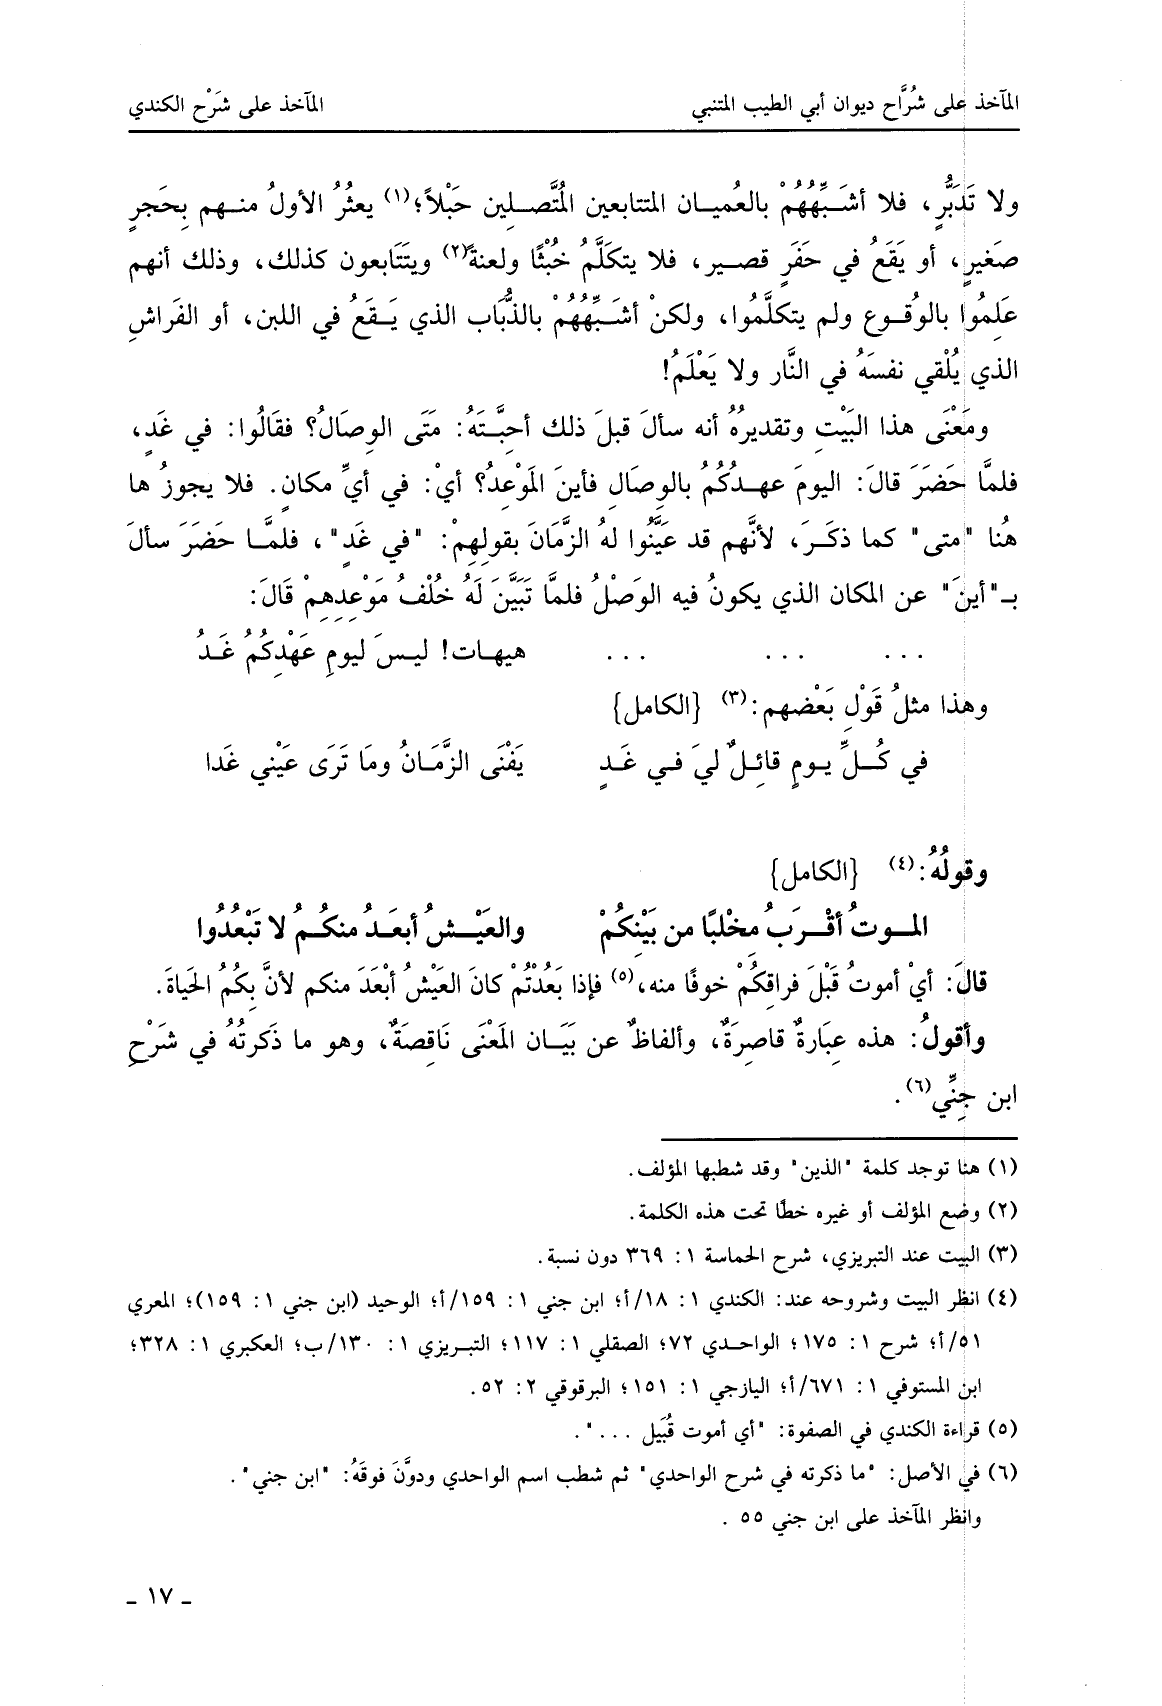 المآخذ على شُرَّاح ديوان أبي الطيب المتنبي المآخذ على شَرْح الكندي
ولا تَدَبُّرٍ، فلا أشَبِّهُهُمْ بالعُميان المتتابعين المُتَّصلِين حَبْلاً؛(١) يعثُرُ الأولُ منهم بِحَجرٍ
صَغيرٍ، أو يَقَعُ في حَفَرٍ قصير، فلا يتكَلَّمُ خُبْثًا ولعنةً(٢) ويتَتَابعون كذلك، وذلك أنهم
عَلِمُوا بالوُقُوع ولم يتكلَّمُوا، ولكنْ أشَبِّهُهُمْ بالذُّبَاب الذي يَقَعُ في اللبن، أو الفَراشِ
الذي يُلْقي نفسَهُ في النَّار ولا يَعْلَمُ!
ومَعْنَى هذا البَيْتِ وتقديرُهُ أنه سألَ قبلَ ذلك أحِبَّتَهُ: مَتَى الوِصَالُ؟ فقَالُوا: في غَدٍ،
فلمَّا حَضَرَ قالَ: اليومَ عهدُكُمُ بالوِصَالِ فأينَ المَوْعِدُ؟ أيْ: في أيِّ مكانٍ. فلا يجوزُ ها
هُنا "متى" كما ذكَرَ، لأنَّهم قد عَيَّنُوا لهُ الزَّمَانَ بقولِهِمْ: "في غَدٍ"، فلمَّا حَضَرَ سألَ
بـ"أينَ" عن المكان الذي يكونُ فيه الوَصْلُ فلمَّا تَبَيَّنَ لَهُ خُلْفُ مَوْعِدِهِمْ قَالَ:
... ... ... هيهات! ليسَ ليومِ عَهْدِكُمُ غَدُ
وهذا مثلُ قَوْلِ بَعْضهم:(٣) {الكامل}
في كُلِّ يومٍ قائِلٌ ليَ في غَدٍ يَفْنَى الزَّمَانُ ومَا تَرَى عَيْني غَدا
وقولُهُ:(٤) {الكامل}
الموتُ أقْرَبُ مِخْلبًا من بَيْنِكُمْ والعَيْشُ أبعَدُ منكُمُ لا تَبْعُدُوا
قالَ: أيْ أموتُ قَبْلَ فراقِكُمْ خوفًا منه،(٥) فإذا بَعُدْتُمْ كانَ العَيْشُ أبْعَدَ منكم لأنَّ بِكُمُ الحَياةَ.
وأقولُ: هذه عِبَارةٌ قاصِرَةٌ، وألفاظٌ عن بَيَان المَعْنَى نَاقِصَةٌ، وهو ما ذَكرتُهُ في شَرْحِ
ابن جِنِّي(٦).
(١) هنا توجد كلمة "الذين" وقد شطبها المؤلف.
(٢) وضع المؤلف أو غيره خطًا تحت هذه الكلمة.
(٣) البيت عند التبريزي، شرح الحماسة ١: ٣٦٩ دون نسبة.
(٤) انظر البيت وشروحه عند: الكندي ١: ١٨/أ؛ ابن جني ١: ١٥٩/أ؛ الوحيد (ابن جني ١: ١٥٩)؛ المعري
٥١/أ؛ شرح ١: ١٧٥؛ الواحدي ٧٢؛ الصقلي ١: ١١٧؛ التبريزي ١: ١٣٠/ب؛ العكبري ١: ٣٢٨؛
ابن المستوفي ١: ٦٧١/أ؛ اليازجي ١: ١٥١؛ البرقوقي ٢: ٥٢.
(٥) قراءة الكندي في الصفوة: "أي أموت قُبَيل ...".
(٦) في الأصل: "ما ذكرته في شرح الواحدي" ثم شطب اسم الواحدي ودوَّنَ فوقَهُ: "ابن جني".
وانظر المآخذ على ابن جني ٥٥ .
ـ ١٧ ـ